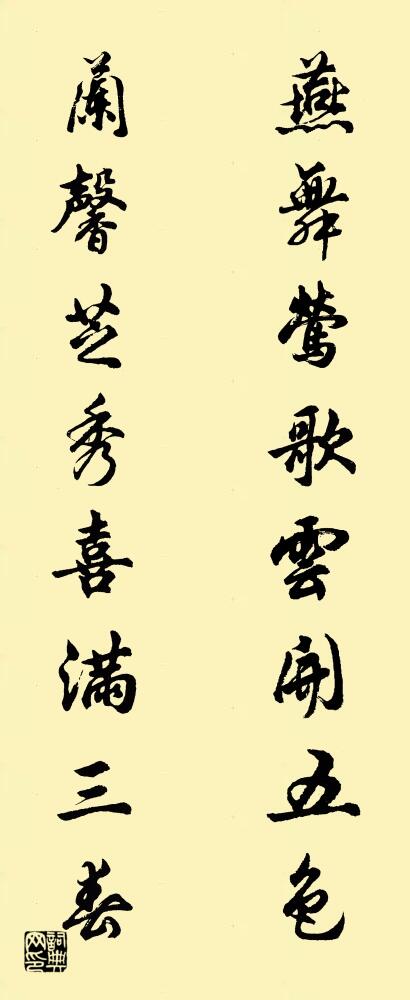 燕舞鶯歌雲開五色
蘭馨芝秀喜滿三春
詞典網印